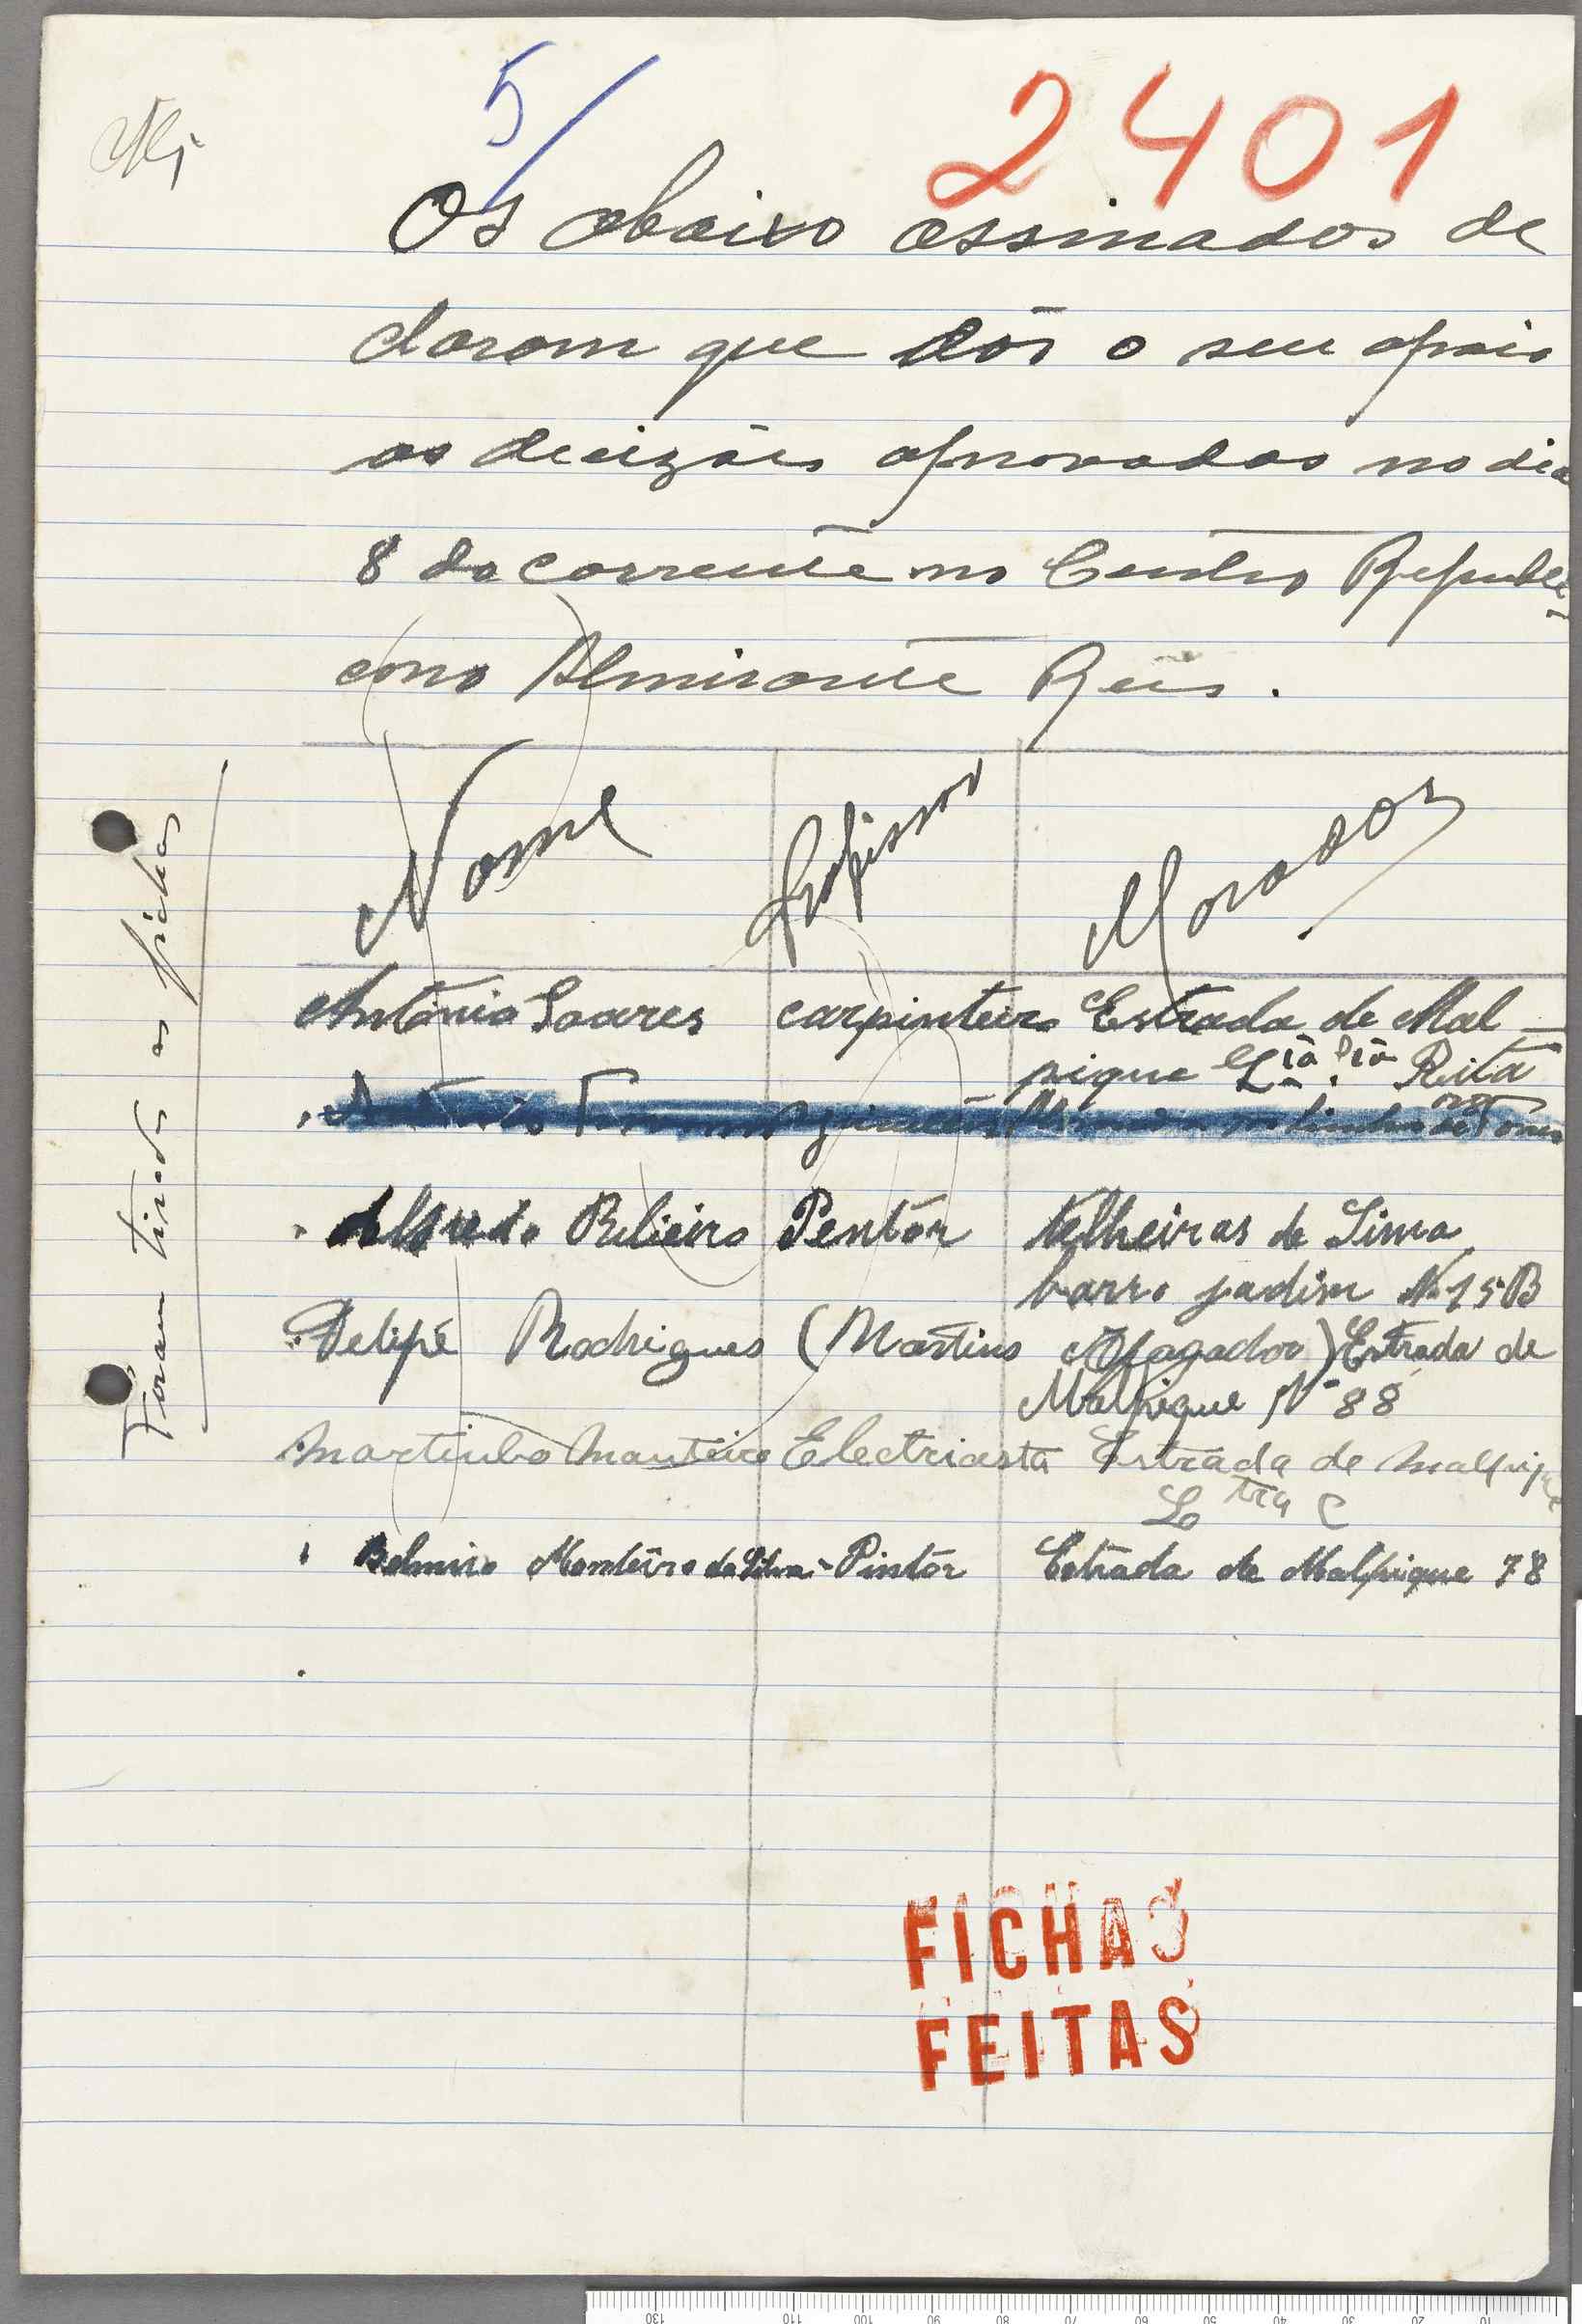 5/
2401
Os abaixo assinados de
claram que dão o seu apoio
as decizões aprovadas no dia
8 do corrente no Centro Republi-
cano Almirante Reis.
Nome Profissão Morada
António Soares carpinteiro Estrada de Mal-
pique Rita
Alfredo Ribieiro Pentôr telheiras de Sima
barro jadim Nº 15 B
Felipe Rodrigues (Martins Afagador) Estrada de
Malpique Nº 88
Martinho Manteiro Electricista Estrada de Malpique
Ltra C
Belmiro Monteiro da Silva - Pintôr Estrada de Malpique 78
Foram tiradas as fichas
FICHAS
FEITAS